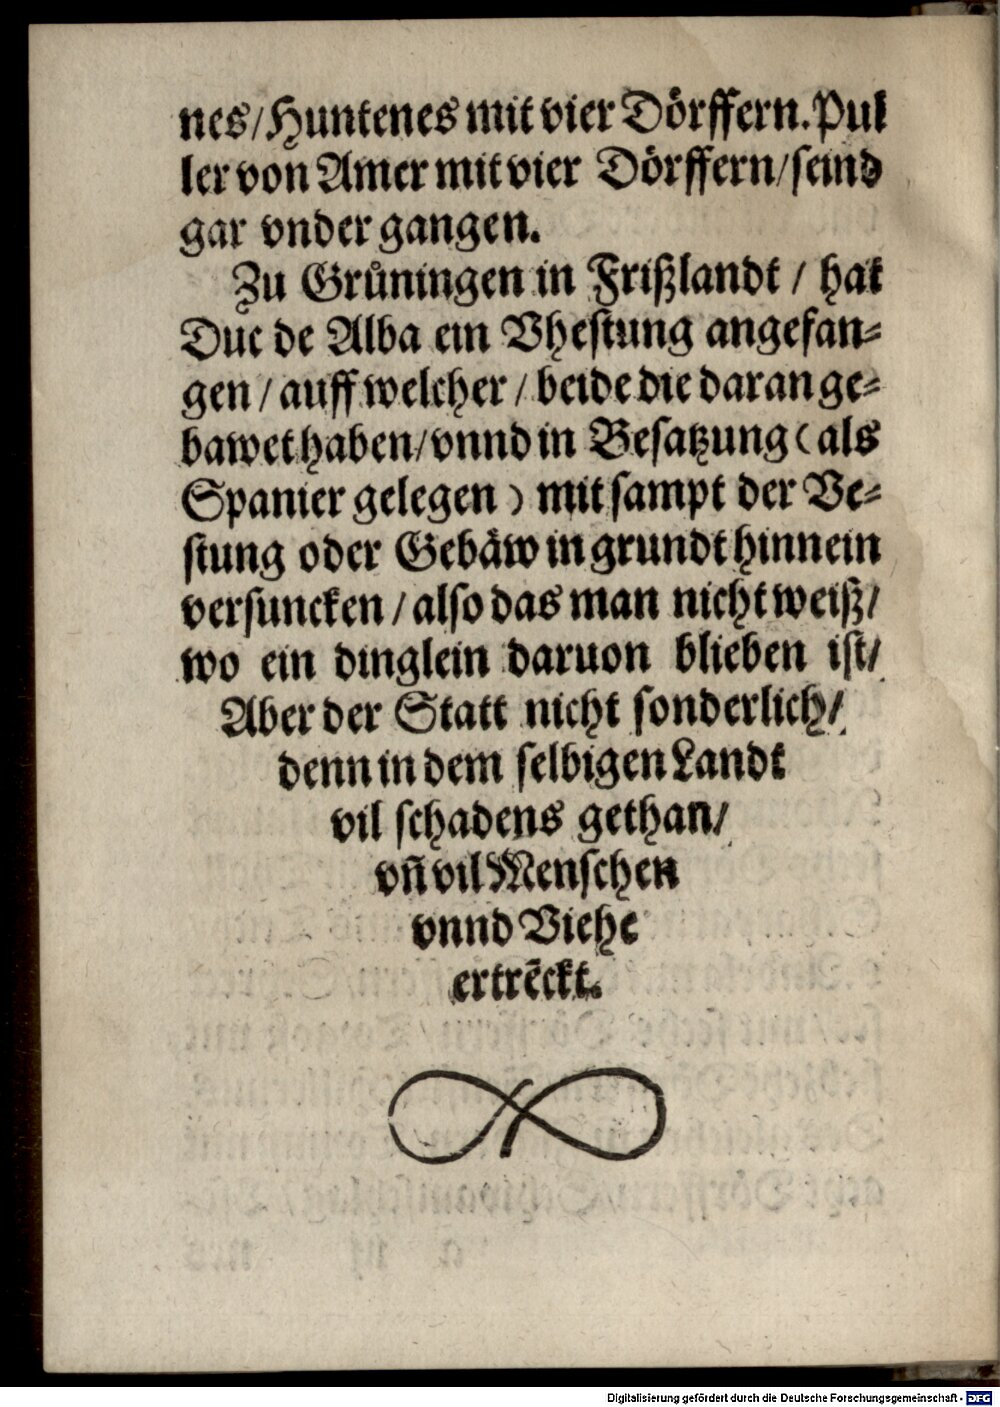 nes/Huntenes mit vier Dörffern. Pul
ler von Amer mit vier Dörffern/seind
gar vnder gangen.
Zu Grůningen in Frißlandt / hat
Duc de Alba ein Vhestung angefan⸗
gen / auff welcher / beide die daran ge⸗
bawet haben/vnnd in Besatzung (als
Spanier gelegen) mit sampt der Ve⸗
stung oder Gebäw in grundt hinnein
versuncken / also das man nicht weiß/
wo ein dinglein daruon blieben ist/
Aber der Statt nicht sonderlich/
denn in dem selbigen Landt
vil schadens gethan/
vñ vil Menschen
vnnd Viehe
ertrēckt.
Digitalisierung gefördert durch die Deutsche Forschungsgemeinschaft - DFG